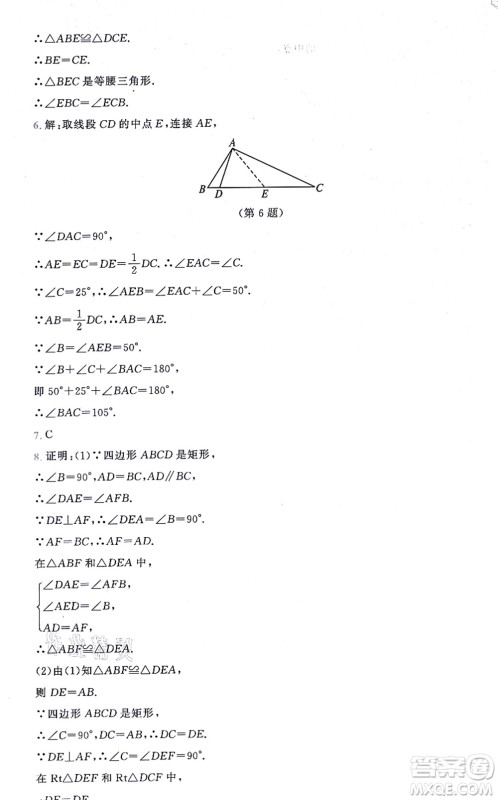 ∴△ABE≌△DCE.
∴BE=CE.
∴△BEC是等腰三角形.
∴∠EBC=∠ECB.
6. 解:取线段CD的中点E,连接AE,
A
B D E C
(第6题)
∵∠DAC=90°,
∴AE=EC=DE=1/2DC. ∴∠EAC=∠C.
∵∠C=25°,∴∠AEB=∠EAC+∠C=50°.
∵AB=1/2DC,∴AB=AE.
∵∠B=∠AEB=50°.
∵∠B+∠C+∠BAC=180°,
即50°+25°+∠BAC=180°,
∴∠BAC=105°.
7. C
8. 证明:(1)∵四边形ABCD是矩形,
∴∠B=90°,AD=BC,AD∥BC,
∴∠DAE=∠AFB.
∵DE⊥AF,∴∠DEA=∠B=90°.
∵AF=BC,∴AF=AD.
在△ABF和△DEA中,
∠DAE=∠AFB,
∠AED=∠B,
AD=AF,
∴△ABF≌△DEA.
(2)由(1)知△ABF≌△DEA,
则DE=AB.
∵四边形ABCD是矩形,
∴∠C=90°,AB=DC,∴DC=DE.
∵DE⊥AF,∴∠DEF=90°.
在Rt△DEF和Rt△DCF中,
∵DE=DE